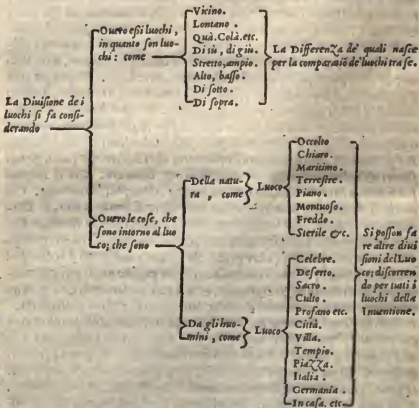 La Diuisione de i
luochi si fa consi-
derando
Ouero essi luochi,
in quanto son luo-
chi: come
Vicino.
Lontano.
Quà. Colà. etc.
Di sù, di giù.
Stretto, ampio.
Alto, basso.
Di sotto.
Di sopra.
La Differenza de' quali nasce
per la comparatiõ de' luochi tra se.
Ouero le cose, che
sono intorno al luo
co; che sono
Della natu-
ra, come
Luoco
Occolto
Chiaro.
Maritimo.
Terrestre.
Piano.
Montuoso.
Freddo.
Sterile &c.
Da gli huo-
mini, come
Luoco
Celebre.
Deserto.
Sacro.
Culto.
Profano etc.
Città.
Villa.
Tempio.
Piazza.
Italia.
Germania.
In casa. etc
Si posson fa
re altre diui
sioni del Luo
co; discorren
do per tutti i
luochi della
Inuentione.